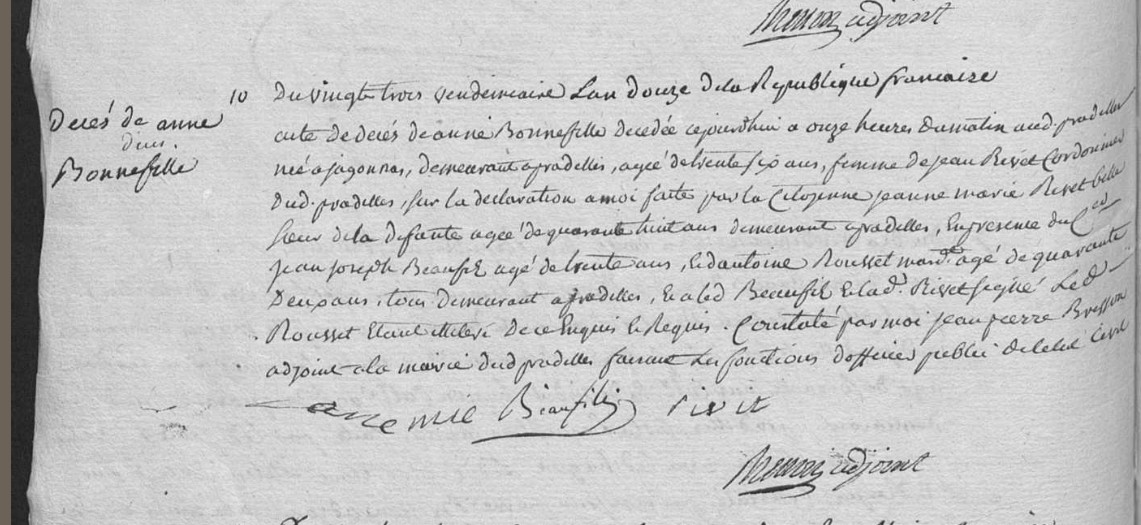 adjoint
10 Du vingt trois vendemiaire Lan Douze De la Republique francaise
Decés de anne
Bonnefille
acte de decés de anne Bonnefille decedée cejourdhui a onze heures du matin aud. pradelles
née a jagonnas, demeurant a pradelles, agée de trente six ans, femme de jean Rivet Cordonnier
dud. pradelles, sur la declaration a moi faite par la Citoyenne jeanne marie Rivet belle
sœur de la defunte agée de quarante huit ans demeurant a pradelles, En presence du Cen
jean joseph Beaufil agé de trente ans, & d'antoine Rousset mard. agé de quarante
Deux ans, tous demeurant a pradelles, & a led Beaufil & lad. Rivet signé Led
Rousset Etant illiteré De ce Enquis & Requis. Constaté par moi jean pierre Bresson
adjoint a la mairie dud pradelles faisant Les fonctions d'officier public de letat Civil
Beaufils rivet
adjoint